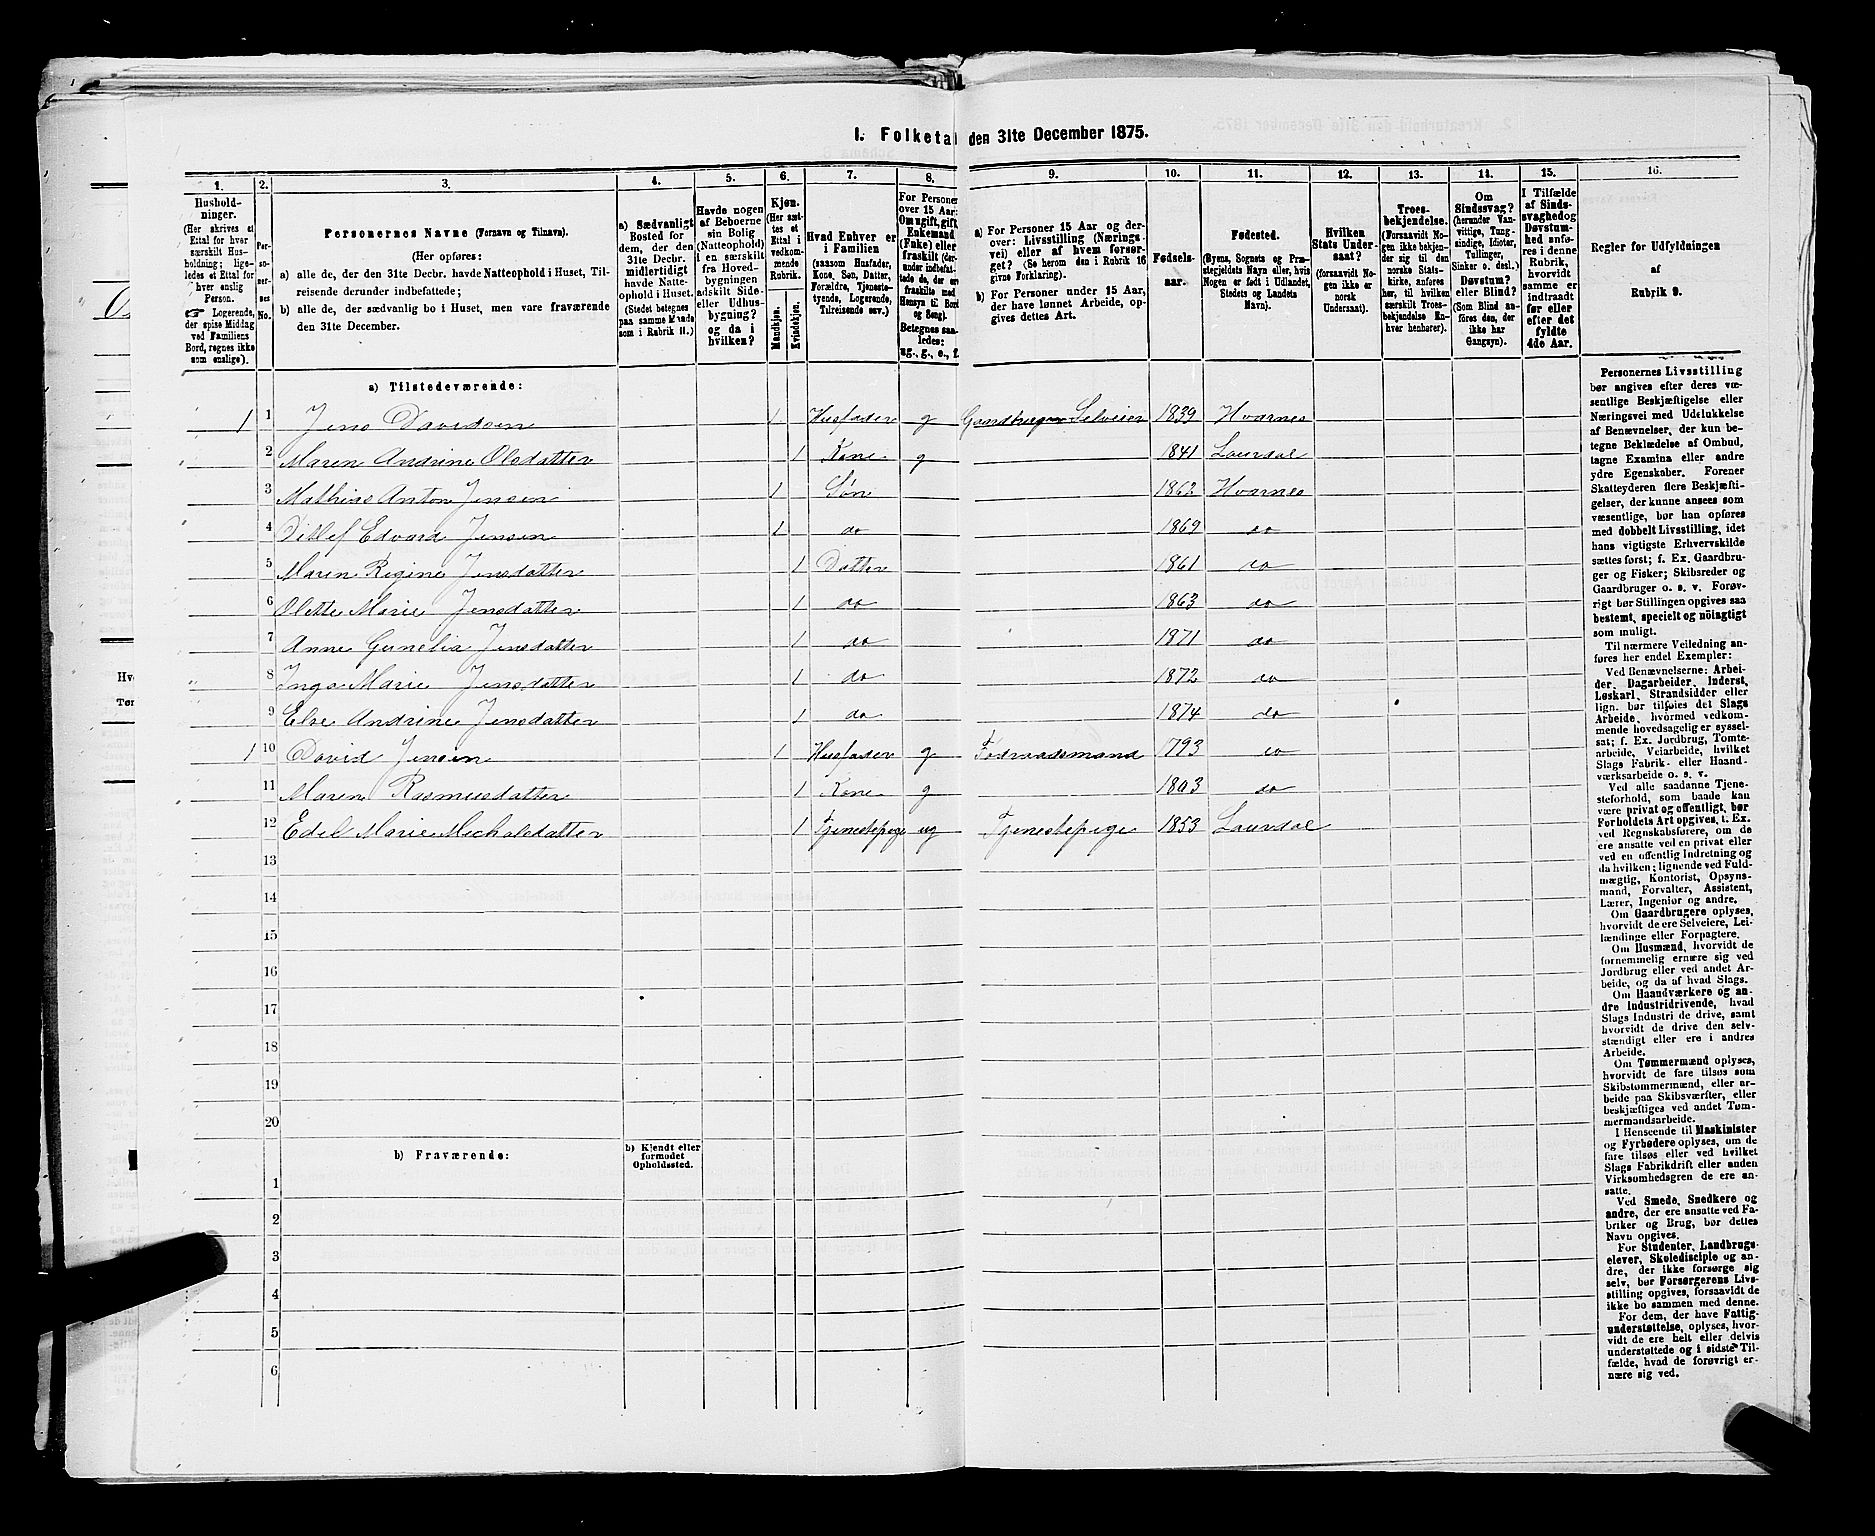 I. Folketal den 31te December 1875.
1.
Husholdninger.
(Her skrives et Ettal for hver særskilt Husholdning; ligeledes et Ettal for hver enslig Person.
☞ Logerende, der spise Middag ved Familiens Bord, regnes ikke som enslige).
2.
Personernes No.
3.
Personernes Navne (Fornavn og Tilnavn).
(Her opføres:
a) alle de, der den 31te Decbr. havde Natteophold i Huset, Tilreisende derunder indbefattede;
b) alle de, der sædvanlig bo i Huset, men vare fraværende den 31te December.
4.
a) Sædvanligt Bosted for dem, der den 31te Decbr. midlertidigt havde Natteophold i Huset. (Stedet betegnes paa samme Maade som i Rubrik 11.)
5.
Havde nogen af Beboerne sin Bolig (Natteophold) i en særskilt fra Hovedbygningen adskilt Side- eller Udhusbygning? og da i hvilken?
6.
Kjøn.
(Her sættes et Ettal i vedkommende Rubrik.
Mandkjøn.
Kvindekjøn.
7.
Hvad Enhver er i Familien
(saasom Husfader, Kone, Søn, Datter, Forældre, Tjenestetyende, Logerende, Tilreisende osv.)
8.
For Personer over 15 Aar: Om ugift, gift, Enkemand (Enke) eller fraskilt (derunder indbefattede de, der ere fraskilte med Hensyn til Bord og Seng).
Betegnes saaledes: ug., g., e., f.
9.
a) For Personer 15 Aar og derover: Livsstilling (Næringsvei) eller af hvem forsørget? (Se herom den i Rubrik 16 givne Forklaring).
b) For Personer under 15 Aar, der have lønnet Arbeide, opgives dettes Art.
10.
Fødselsaar.
11.
Fødested.
(Byens, Sognets og Præstegjeldets Navn eller, hvis Nogen er født i Udlandet, Stedets og Landets Navn).
12.
Hvilken Stats Undersaat?
(forsaavidt Nogen ikke er norsk Undersaat).
13.
Troesbekjendelse.
(Forsaavidt Nogen ikke bekjender sig til den norske Statskirke, anføres her, til hvilken særskilt Troesbekjendelse Enhver henhører).
14.
Om Sindssvag? (herunder Vanvittige, Tungsindige, Idioter, Tullinger, Sinker o. desl.) Døvstum? eller Blind? (Som Blind anføres den, der ikke har Gangsyn).
15.
I Tilfælde af Sindssvaghed og Døvstumhed anføres i denne Rubrik, hvorvidt samme er indtraadt før eller efter det fyldte 4de Aar.
16.
Regler for Udfyldningen af Rubrik 9.
a) Tilstedeværende:
1 1 Jens Davidsen 1 Husfader g Gaardbruger Selveier 1839 Hvarnes
2 Maren Andrine Olsdatter 1 Kone g 1841 Laurdal
3 Mathias Anton Jensen 1 Søn 1862 Hvarnes
4 Ditlef Edvard Jensen 1 do 1869 do
5 Maren Regine Jensdatter 1 Datter 1861 do
6 Olette Marie Jensdatter 1 do 1863 do
7 Anne Gunelia Jensdatter 1 do 1871 do
8 Inga Marie Jensdatter 1 do 1872 do
9 Else Andrine Jensdatter 1 do 1874 do
1 10 David Jensen 1 Husfader g Fodraadsmand 1793 do
11 Maren Rasmusdatter 1 Kone g 1803 do
12 Edel Marie Micholsdatter 1 Tjenestepige ug Tjenestepige 1853 Laurdal
13
14
15
16
17
18
19
20
b) Fraværende:
b) Kjendt eller formodet Opholdssted.
1
2
3
4
5
6
Personernes Livsstilling
bør angives efter deres væ-
sentlige Beskjæftigelse eller
Næringsvei med Udelukkelse
af Benævnelser, der kun be-
tegne Beklædelse af Ombud,
tagne Examina eller andre
ydre Egenskaber. Forener
Skatteyderen flere Beskjæfti-
gelser, der kunne ansees som
væsentlige, bør han opføres
med dobbelt Livsstilling, idet
hans vigtigste Erhvervskilde
sættes først; f. Ex. Gaardbru-
ger og Fisker; Skibsreder og
Gaardbruger o. s. v. Forøv-
rigt bør Stillingen opgives saa
bestemt, specielt og nöiagtigt
som muligt.
Til nærmere Veiledning an-
føres her endel Exempler:
Ved Benævnelserne: Arbei-
der, Dagarbeider, Inderst,
Løskarl, Strandsidder eller
lign. bør tilføies det Slags
Arbeide, hvormed vedkom-
mende hovedsagelig er syssel-
sat; f. Ex. Jordbrug, Tomte-
arbeide, Veiarbeide, hvilket
Slags Fabrik- eller Haand-
værksarbeide o. s. v.
Ved alle saadanne Tjene-
steforhold, som baade kan
være privat og offentligt, bør
Forholdets Art opgives, t. Ex.
ved Regnskabsførere, om de
ere ansatte ved en privat eller
ved en offentlig Indretning og
da hvilken; lignende ved Fuld-
mægtig, Kontorist, Opsyns-
mand, Forvalter, Assistent,
Lærer, Ingeniør og andre.
Om Gaardbrugere oplyses,
hvorvidt de ere Selveiere, Lei-
lændinge eller Forpagtere.
Om Husmænd, hvorvidt de
fornemmelig ernære sig ved
Jordbrug eller ved andet Ar-
beide, og da af hvad Slags.
Om Haandværkere og an-
dre Industridrivende, hvad
Slags Industri de drive, samt
hvorvidt de drive den selv-
stændigt eller ere i andres
Arbeide.
Om Tømmermænd oplyses,
hvorvidt de fare tilsøs som
Skibstømmermænd, eller ar-
beide paa Skibsværfter, eller
beskjæftiges ved andet Tøm-
mermandsarbeide.
I Henseende til Maskinister
og Fyrbødere oplyses, om de
fare tilsøs eller ved hvilket
Slags Fabrikdrift eller anden
Virksomhedsgren de ere an-
satte.
Ved Smede, Snedkere og
andre, der ere ansatte ved Fa-
briker og Brug, bør dettes
Navn opgives.
For Studenter, Landbrugs-
elever, Skoledisciple og an-
dre, der ikke forsørge sig
selv, bør Forsørgerens Livs-
stilling opgives, forsaavidt de
ikke bo sammen med denne.
For dem, der have Fattig-
understøttelse, oplyses, hvor-
vidt de ere helt eller delvis
understøttede og i sidste Til-
fælde, hvad de forøvrigt er-
nære sig ved.